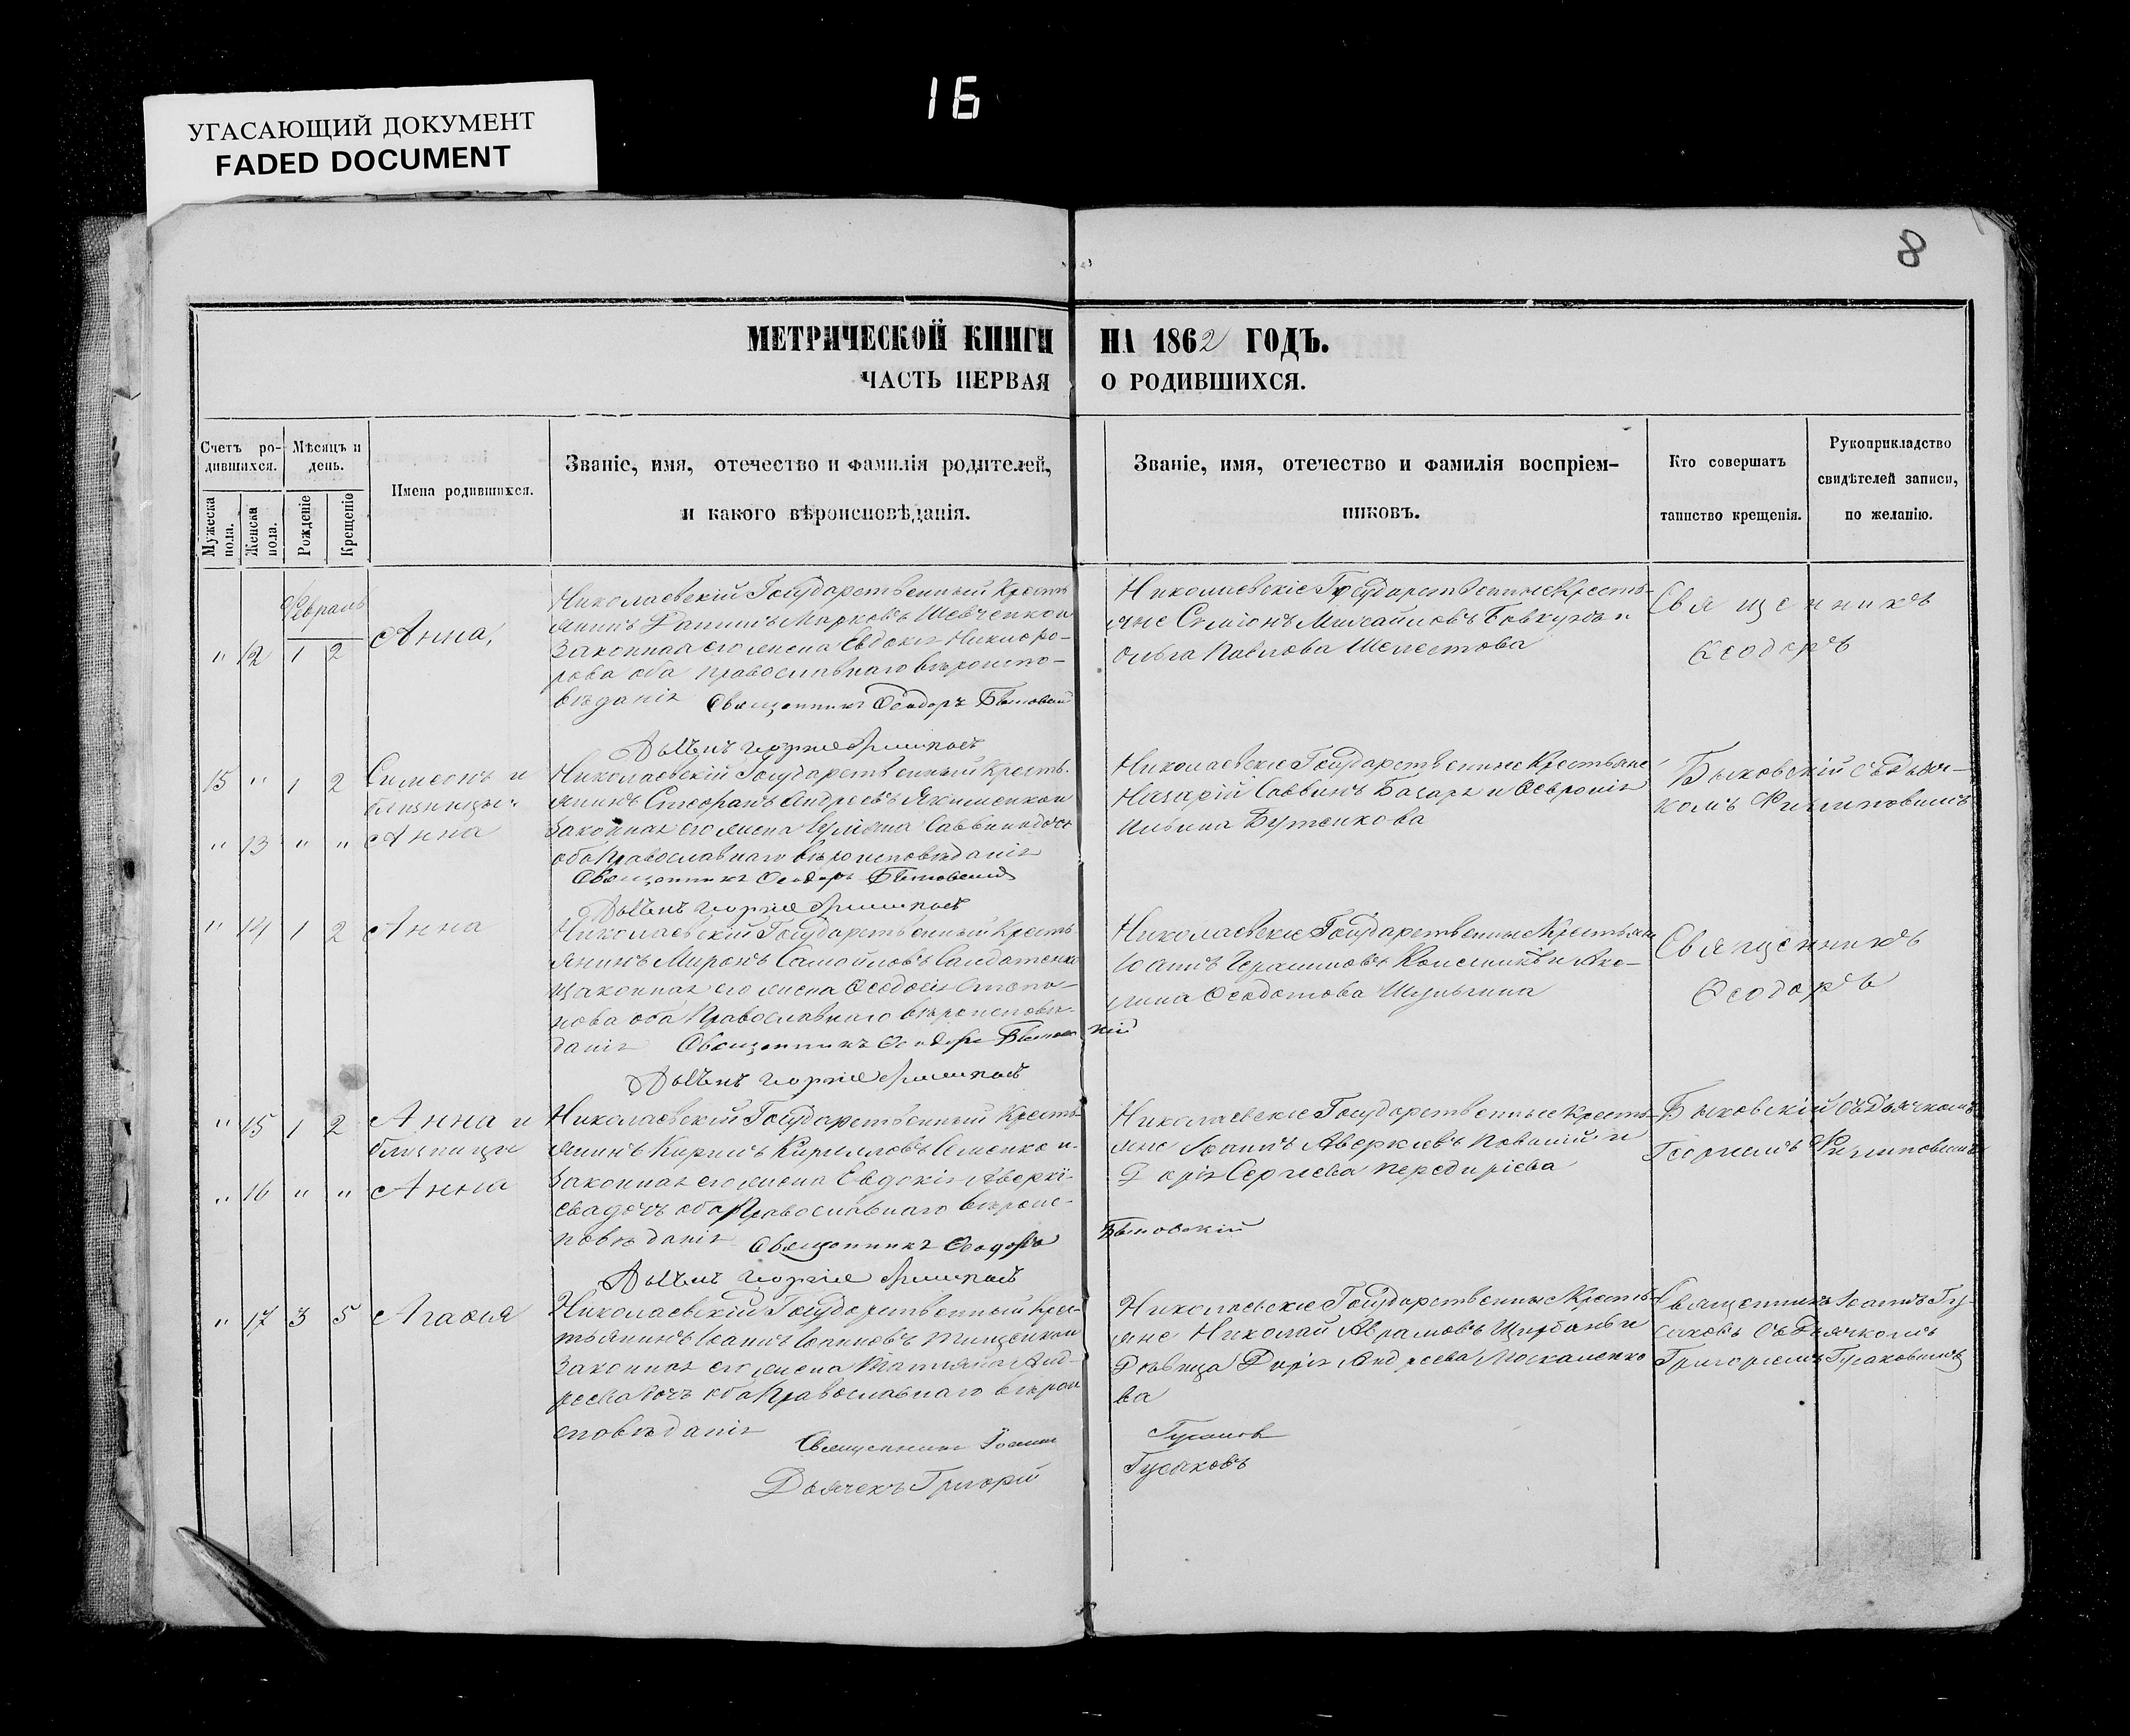 16
УГАСАЮЩИЙ ДОКУМЕНТ
FADED DOCUMENT
8
МЕТРИЧЕСКОЙ КНИГИ НА 1862 ГОДЪ.
ЧАСТЬ ПЕРВАЯ О РОДИВШИХСЯ.
Счетъ ро-
дившихся.
Мѣсяцъ и
день.
Мужеска
пола.
Женска
пола.
Рожденіе
Крещеніе
Имена родившихся.
Званіе, имя, отечество и фамилія родителей,
и какого вѣроисповѣданія.
Званіе, имя, отечество и фамилія воспріем-
никовъ.
Кто совершатъ
таинство крещенія.
Рукоприкладство
свидѣтелей записи,
по желанію.
Февраль
" 12 1 2
Анна,
Николаевскій Государственный Кресть
янинъ Маркокъ Шевченко и
законная его жена Евдокія Никифо-
рова оба православнаго вѣроиспо-
вѣданія Священникъ Ѳеодоръ Быковскій
Николаевскіе Государственные Кресть-
яне Симіонъ Михайловъ Бовкунъ и
Ольга Павлова Шелестова
Священникъ
Ѳеодоръ
15 " 1 2
Симеонъ и
близницы
" 13 " " Анна
Николаевскій Государственный Кресть-
янинъ Стефанъ Андреевъ Якименко и
законная его жена Саввина
оба Православнаго вѣроисповѣданія
Священникъ Ѳеодоръ Быковскій
Николаевскіе Государственные Крестьяне
Назарій Саввинъ Базарь и Ѳевронія
Ильина Бутенкова
Быковскій съ Дьяч-
комъ Филиповымъ
" 14 1 2 Анна
Николаевскій Государственный Кресть
янинъ Миронъ Самойловъ Солдатенко
законная его жена Ѳеодосія Степа-
нова оба Православнаго вѣроисповѣ-
данія Священникъ Ѳеодоръ Быковскій
Николаевскіе Государственные Крестьяне
Іоаннъ Герасимовъ Колесникъ и Аку-
лина Ѳеодотова Шульгина
Священникъ
Ѳеодоръ
" 15 1 2 Анна и
близницы
" 16 " " Анна
Николаевскій Государственный Кресть-
янинъ Кирилъ Кириловъ Семенко и
законная его жена Евдокія Аверкі-
ева дочь оба Православнаго вѣроис-
повѣданія Священникъ Ѳеодоръ
Быковскій
Николаевскіе Государственные Кресть-
яне Іоаннъ Аверкіевъ и
Дарія Сергіева Передиріева
Быковскій съ Дьячкомъ
Георгіемъ Филиповымъ
" 17 3 5 Агафія
Николаевскій Государственный Крес-
тьянинъ Іоаннъ Іоанновъ Тищенко и
законная его жена Татіяна Анд-
реева дочь оба Православнаго вѣрои
сповѣданія
Священникъ Іоаннъ Гусаковъ
Дьячекъ Григорій Гусаковъ
Николаевскіе Государственные Кресть-
яне Николай Аврамовъ Щербань и
Дѣвица Дарія Андреева Москаленко
ва
Священникъ Іоаннъ Гу-
саковъ съ Дьячкомъ
Григоріемъ Гусаковымъ